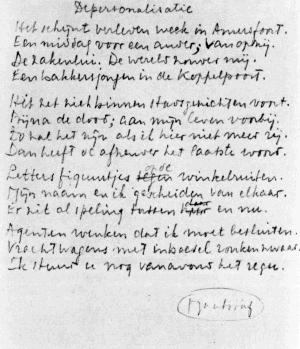 Depersonalisatie
Het schijnt verleden week in Amersfoort.
Een middag voor een ander, van opzij.
De zakenlui. De wereld zonder mij.
Een bakkersjongen in de Koppelpoort.
Hit het ziek binnen stadsgezichten voort.
Bijna de dood; aan mijn leven voorbij.
Zo zal het zijn als ik hier niet meer rij.
Dan heeft de afhever het laatste woord.
Letters figuurtjes op de winkelruiten.
Mijn naam en ik gescheiden van elkaar.
Er zit al speling tussen daar en nu.
Agenten wenken dat ik moet besluiten.
Vrachtwagens met inboedel ronken zwaar.
Ik stuur u nog vanavond het regu.